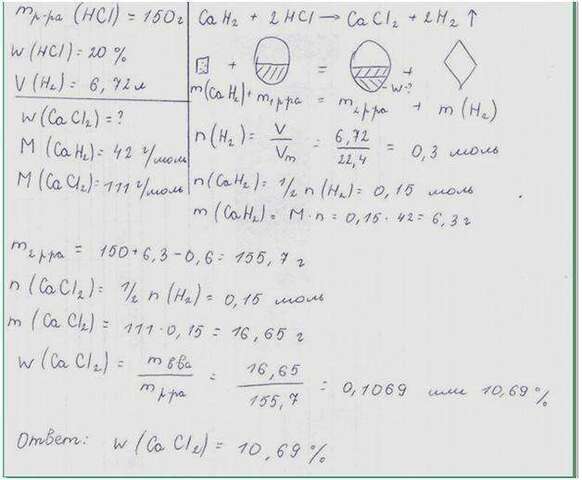 m р-ра (HCl) = 150 г
w (HCl) = 20 %
V (H₂) = 6,72 л
w (CaCl₂) = ?
M (CaH₂) = 42 г/моль
M (CaCl₂) = 111 г/моль
CaH₂ + 2HCl → CaCl₂ + 2H₂ ↑
+ = +
w-?
m (CaH₂) + m₁ р-ра = m₂ р-ра + m (H₂)
n (H₂) = V/Vm = 6,72/22,4 = 0,3 моль
n (CaH₂) = 1/2 n (H₂) = 0,15 моль
m (CaH₂) = M · n = 0,15 · 42 = 6,3 г
m₂ р-ра = 150 + 6,3 - 0,6 = 155,7 г
n (CaCl₂) = 1/2 n (H₂) = 0,15 моль
m (CaCl₂) = 111 · 0,15 = 16,65 г
w (CaCl₂) = m в-ва/m р-ра = 16,65/155,7 = 0,1069 или 10,69 %
Ответ: w (CaCl₂) = 10,69 %